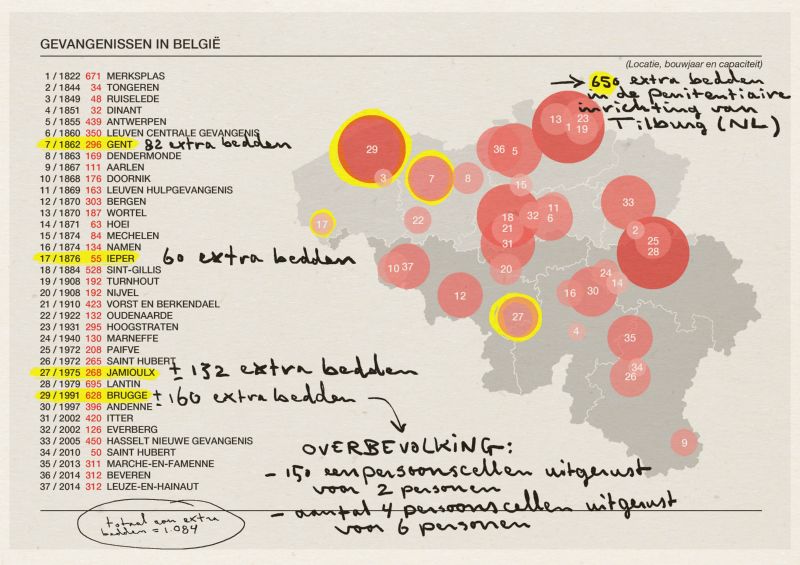 GEVANGENISSEN IN BELGIË
(Locatie, bouwjaar en capaciteit)
→ 650 extra bedden
in de penitentiaire
inrichting van
Tilburg (NL)
1 / 1822 671 MERKSPLAS
2 / 1844 34 TONGEREN
3 / 1849 48 RUISELEDE
4 / 1851 32 DINANT
5 / 1855 439 ANTWERPEN
6 / 1860 350 LEUVEN CENTRALE GEVANGENIS
7 / 1862 296 GENT 82 extra bedden
8 / 1863 169 DENDERMONDE
9 / 1867 111 AARLEN
10 / 1868 176 DOORNIK
11 / 1869 163 LEUVEN HULPGEVANGENIS
12 / 1870 303 BERGEN
13 / 1870 187 WORTEL
14 / 1871 63 HOEI
15 / 1874 84 MECHELEN
16 / 1874 134 NAMEN
17 / 1876 55 IEPER 60 extra bedden
18 / 1884 528 SINT-GILLIS
19 / 1908 192 TURNHOUT
20 / 1908 192 NIJVEL
21 / 1910 423 VORST EN BERKENDAEL
22 / 1922 132 OUDENAARDE
23 / 1931 295 HOOGSTRATEN
24 / 1940 130 MARNEFFE
25 / 1972 208 PAIFVE
26 / 1972 265 SAINT HUBERT
27 / 1975 268 JAMIOULX ± 132 extra bedden
28 / 1979 695 LANTIN
29 / 1991 628 BRUGGE ± 160 extra bedden
30 / 1997 396 ANDENNE
31 / 2002 420 ITTER
32 / 2002 126 EVERBERG
33 / 2005 450 HASSELT NIEUWE GEVANGENIS
34 / 2010 50 SAINT HUBERT
35 / 2013 311 MARCHE-EN-FAMENNE
36 / 2014 312 BEVEREN
37 / 2014 312 LEUZE-EN-HAINAUT
13 23
1 19
29
36 5
3
7
8
15
17
22
18
21
32
11
6
33
2
31
25
28
10 37
20
24
14
12
16
30
27
4
35
34
26
9
OVERBEVOLKING:
- 150 eenpersoonscellen uitgerust
voor 2 personen
- aantal 4 persoonscellen uitgerust
voor 6 personen
totaal aan extra
bedden = 1.084